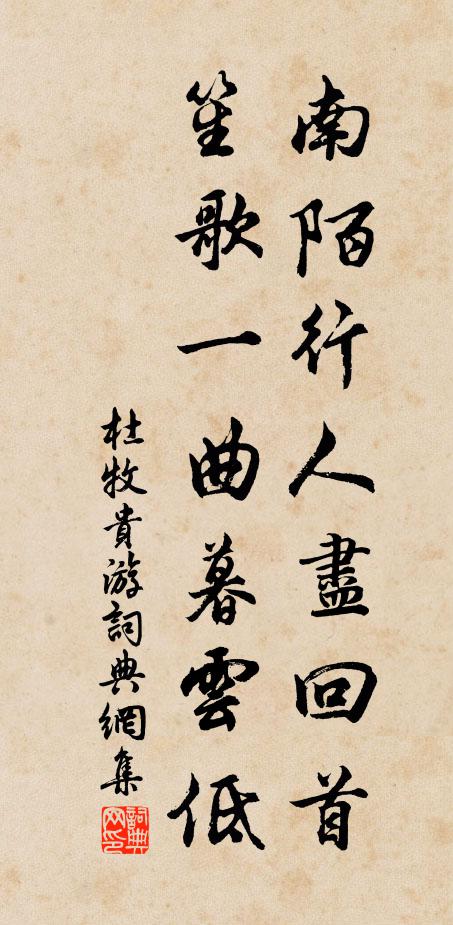 南陌行人盡回首
笙歌一曲暮雲低
杜牧貴游詞典網集
詞典網印